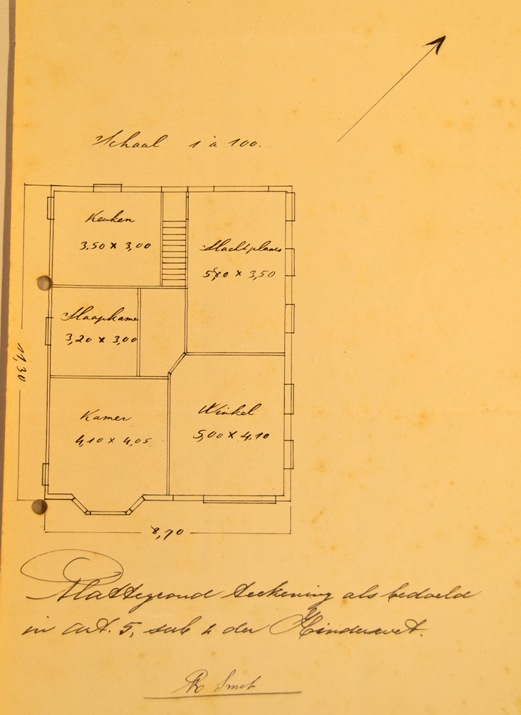 Schaal 1 à 100.
Keuken
3,50 x 3,00
Slachtplaats
5,70 x 3,50
Slaapkamer
3,20 x 3,00
11,30
Kamer
4,10 x 4,05
Winkel
5,00 x 4,10
8,90
Plattegrond teekening als bedoelde
in art. 5, sub 2 der Hinderwet.
Smok